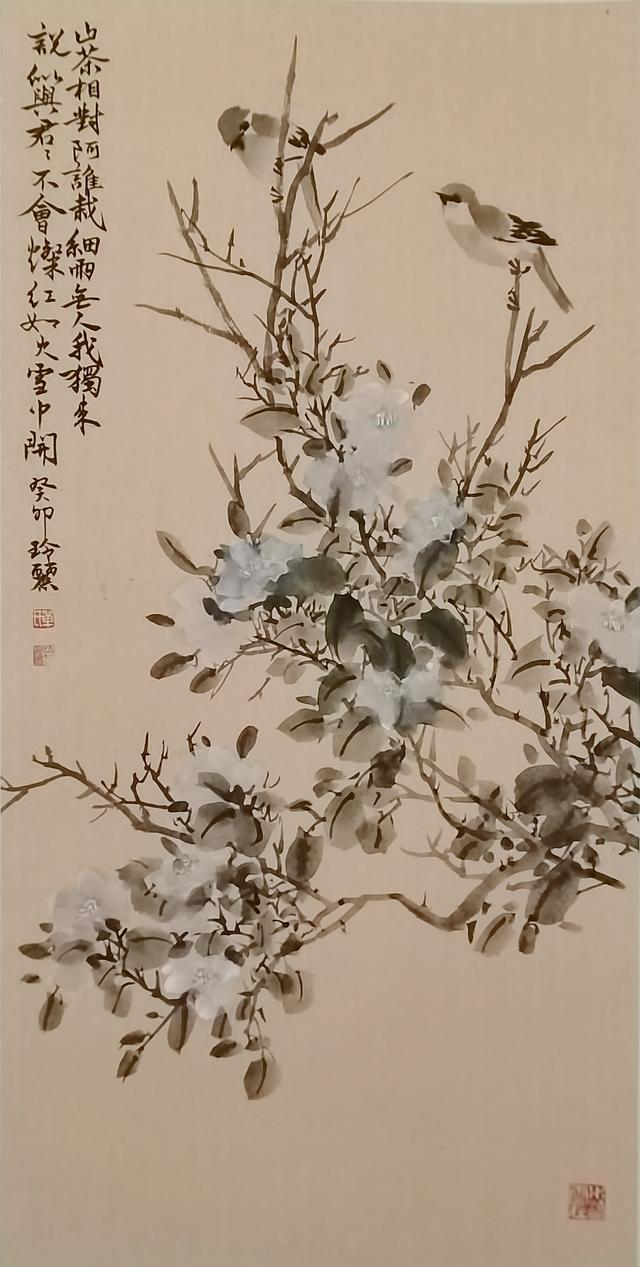 山茶相對阿誰栽細雨無人我獨來
說似與君〻不會燦紅如火雪中開癸卯玲麗